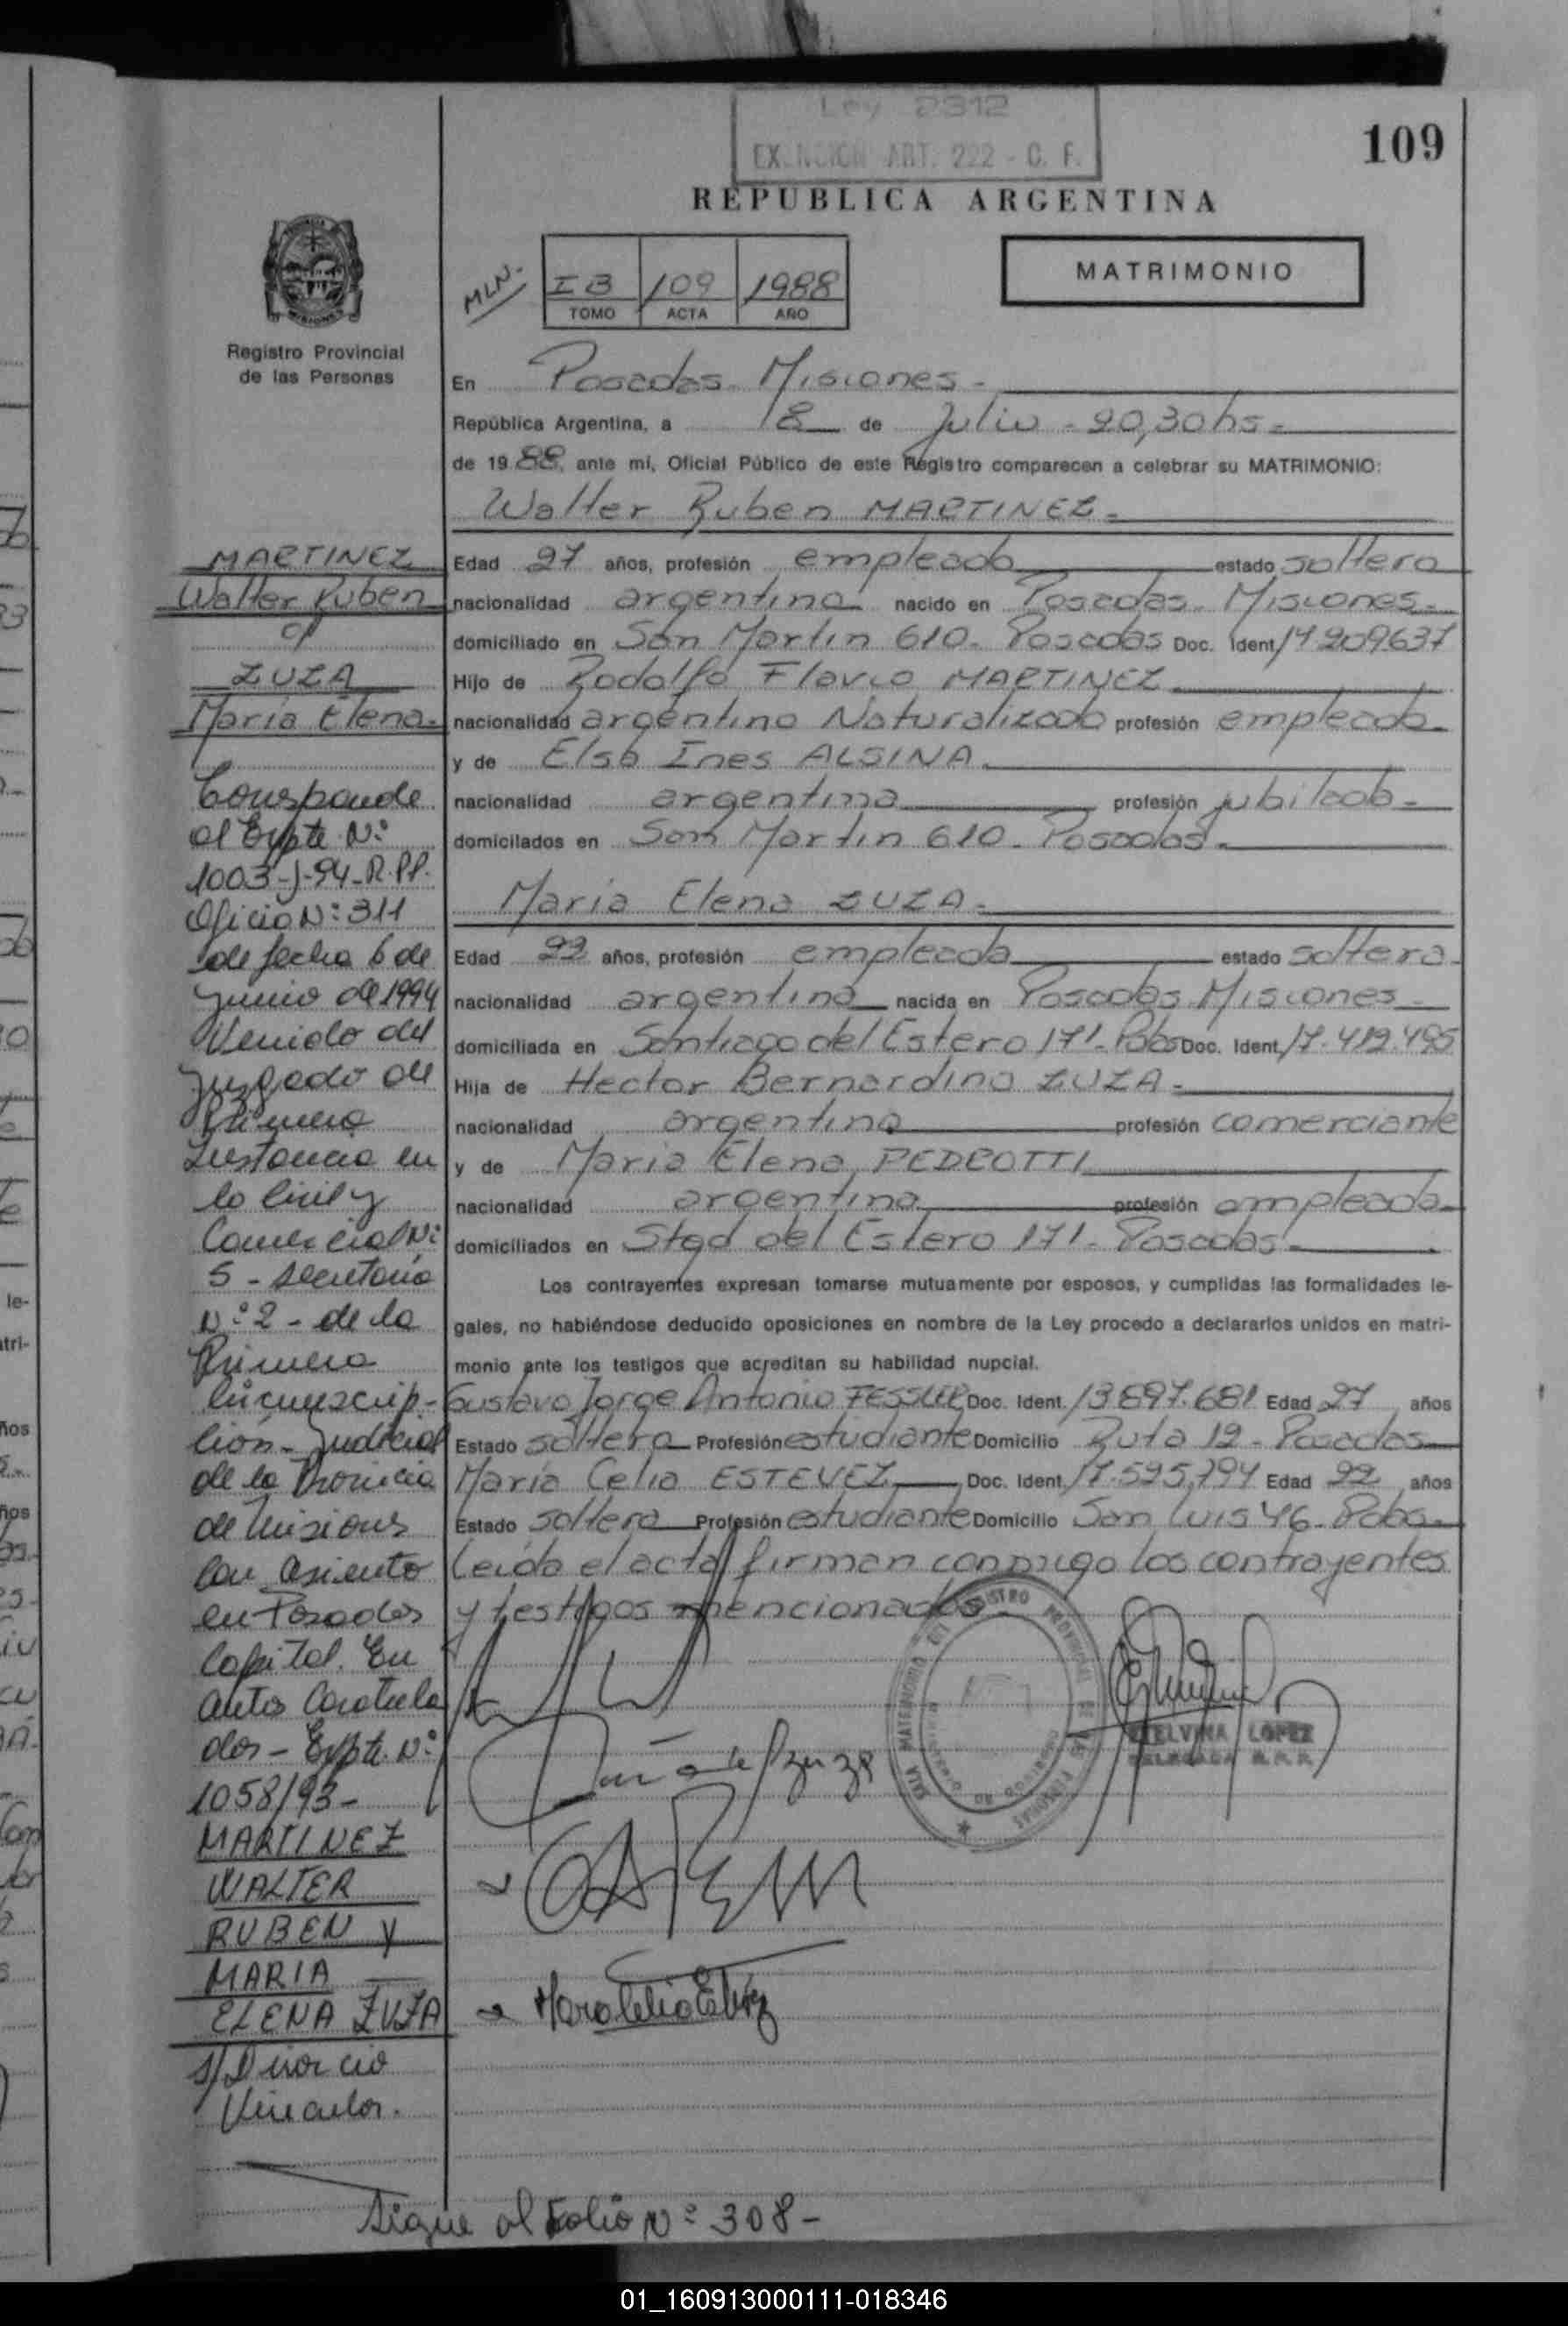 Ley 2312
EXENCION ART. 222 - C. F.
109
REPUBLICA ARGENTINA
MLN.
I B 109 1988
TOMO ACTA AÑO
MATRIMONIO
Registro Provincial
de las Personas
En Posadas - Misiones -
República Argentina, a 18 de Julio - 20,30 hs -
de 1988, ante mí, Oficial Público de este Registro comparecen a celebrar su MATRIMONIO:
Walter Ruben MARTINEZ -
Edad 27 años, profesión empleado estado soltero
nacionalidad argentino nacido en Posadas - Misiones -
domiciliado en San Martin 610 - Posadas Doc. Ident 14209637
Hijo de Rodolfo Flavio MARTINEZ
nacionalidad argentino Naturalizado profesión empleado -
y de Elsa Ines ALSINA -
nacionalidad argentina profesión jubilada -
domicilados en San Martin 610 - Posadas -
Maria Elena ZUZA -
Edad 22 años, profesión empleada estado soltera -
nacionalidad argentina nacida en Posadas - Misiones -
domiciliada en Santiago del Estero 171 - Pdas Doc. Ident 17.412.495
Hija de Hector Bernardino ZUZA -
nacionalidad argentino profesión comerciante
y de Maria Elena PEDROTTI
nacionalidad argentina profesión empleada -
domiciliados en Stgo del Estero 171 - Posadas -
Los contrayentes expresan tomarse mutuamente por esposos, y cumplidas las formalidades le-
gales, no habiéndose deducido oposiciones en nombre de la Ley procedo a declararlos unidos en matri-
monio ante los testigos que acreditan su habilidad nupcial.
Gustavo Jorge Antonio Doc. Ident. 13.897.681 Edad 27 años
Estado soltero Profesión estudiante Domicilio Ruta 12 - Posadas
María Celia ESTEVEZ Doc. Ident 17.595,794 Edad 22 años
Estado soltera Profesión estudiante Domicilio San Luis 46 - Pdas -
Leída el acta firman conmigo los contrayentes
y testigos mencionados -
ETELVINA LOPEZ
DELEGADA R.P.P.
Maria Celia Estevez
MARTINEZ
Walter Ruben
c/
ZUZA
María Elena -
Corresponde
al Expte Nº
1003-J-94-R.PP.
Oficio Nº 311
de fecha 6 de
Junio de 1994
Venido del
Juzgado de
Primera
Instancia en
lo Civil y
Comercial Nº
5 - Secretaria
Nº 2 - de la
Primera
Circunscrip-
ción - Judicial
de la Provincia
de Misiones
con asiento
en Posadas
Capital. En
autos Caratula
dos - Expte. Nº
1058/93 -
MARTINEZ
WALTER
RUBEN y
MARIA
ELENA ZUZA
s/ Divorcio
Vincular.
Sigue al Folio Nº 308 -
01_160913000111-018346